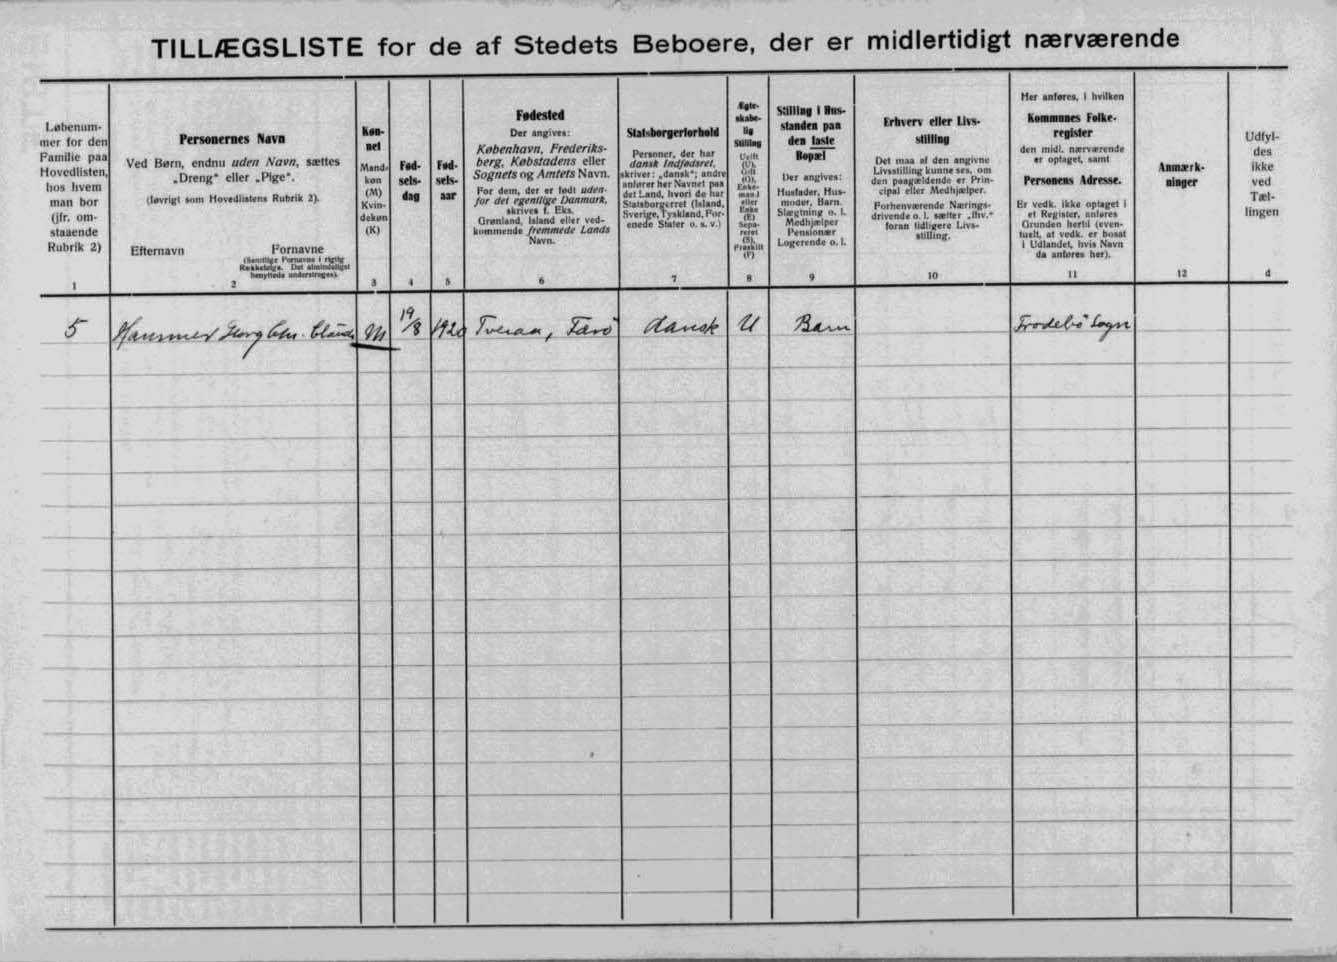 TILLÆGSLISTE for de af Stedets Beboere, der er midlertidigt nærværende
Løbenum-
mer for den
Familie paa
Hovedlisten,
hos hvem
man bor
(jfr. om-
staaende
Rubrik 2)
1
Personernes Navn
Ved Børn, endnu uden Navn, sættes
„Dreng“ eller „Pige“.
(Iøvrigt som Hovedlistens Rubrik 2).
Efternavn
Fornavne
(Samtlige Fornavne i rigtig
Rækkefølge. Det almindeligst
benyttede understreges).
2
Køn-
net
Mand-
køn
(M)
Kvin-
dekøn
(K)
3
Fød-
sels-
dag
4
Fød-
sels-
aar
5
Fødested
Der angives:
København, Frederiks-
berg, Købstadens eller
Sognets og Amtets Navn.
For dem, der er født uden-
for det egentlige Danmark,
skrives f. Eks.
Grønland, Island eller ved-
kommende fremmede Lands
Navn.
6
Statsborgerforhold
Personer, der har
dansk Indfødsret,
skriver: „dansk“; andre
anfører her Navnet paa
det Land, hvori de har
Statsborgerret (Island,
Sverige, Tyskland, For-
enede Stater o. s. v.)
7
Ægte-
skabe-
lig
Stilling
Ugift
(U),
Gift
(G),
Enke-
mand
eller
Enke
(E)
Sepa-
reret
(S),
Fraskilt
(F)
8
Stilling i Hus-
standen paa
den faste
Bopæl
Der angives:
Husfader, Hus-
moder, Barn,
Slægtning o. l.
Medhjælper
Pensionær
Logerende o. l.
9
Erhverv eller Livs-
stilling
Det maa af den angivne
Livsstilling kunne ses, om
den paagældende er Prin-
cipal eller Medhjælper.
Forhenværende Nærings-
drivende o. l. sætter „fhv.“
foran tidligere Livs-
stilling.
10
Her anføres, i hvilken
Kommunes Folke-
register
den midl. nærværende
er optaget, samt
Personens Adresse.
Er vedk. ikke optaget i
et Register, anføres
Grunden hertil (even-
tuelt, at vedk. er bosat
i Udlandet, hvis Navn
da anføres her).
11
Anmærk-
ninger
12
Udfyl-
des
ikke
ved
Tæl-
lingen
d
5 Hammer Georg Chr. M 19/8 1920 Tveraa, Færö dansk U Barn Frodebö Sogn